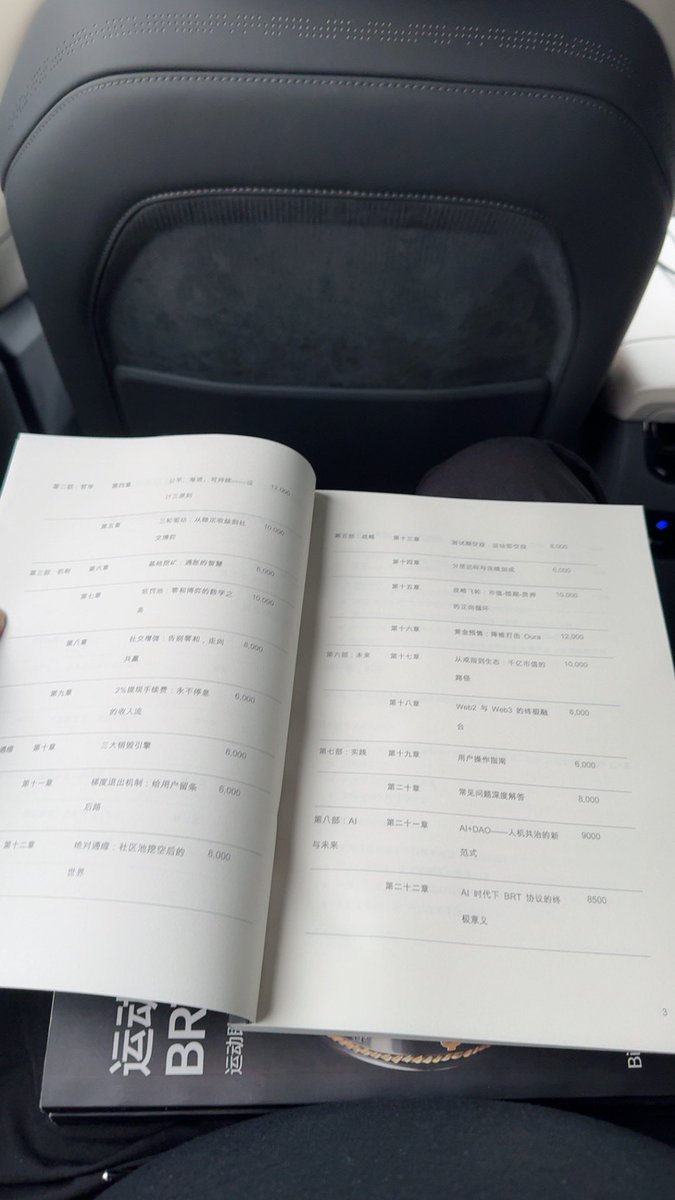 第二部：哲学 第四章 公平、渐进、可持续——设 12,000
计三原则
第五章 三轮驱动：从稳定收益到社 10,000
交博弈
第三部：机制 第六章 基础挖矿：通胀的智慧 8,000
第七章 惩罚池：零和博弈的数学之 10,000
美
第八章 社交增强：告别零和，走向 8,000
共赢
第九章 2%提现手续费：永不停息 6,000
的收入流
通缩 第十章 三大销毁引擎 6,000
第十一章 梯度退出机制：给用户留条 6,000
后路
第十二章 绝对通缩：社区池挖空后的 8,000
世界
第五部：战略 第十三章 测试期空投 运动即空投 8,000
第十四章 分层达标与连续加成 6,000
第十五章 战略飞轮：市值-销毁-质押 10,000
的正向循环
第十六章 黄金预售：降维打击 Oura 12,000
第六部：未来 第十七章 从戒指到生态：千亿市值的 10,000
路径
第十八章 Web2 与 Web3 的终极融 6,000
合
第七部：实践 第十九章 用户操作指南 6,000
第二十章 常见问题深度解答 8,000
第八部：AI 第二十一章 AI+DAO——人机共治的新 9000
与未来 范式
第二十二章 AI 时代下 BRT 协议的终 8500
极意义
3
运动
BR
运动即
Bi